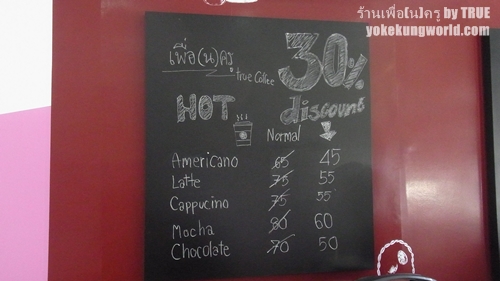 ร้านเพื่อ[น]ครู by TRUE
yokekungworld.com
เพื่อ(น)ครู
True Coffee
30%
discount
HOT
Normal
Americano 65 45
Latte 75 55
Cappucino 75 55
Mocha 80 60
Chocolate 70 50